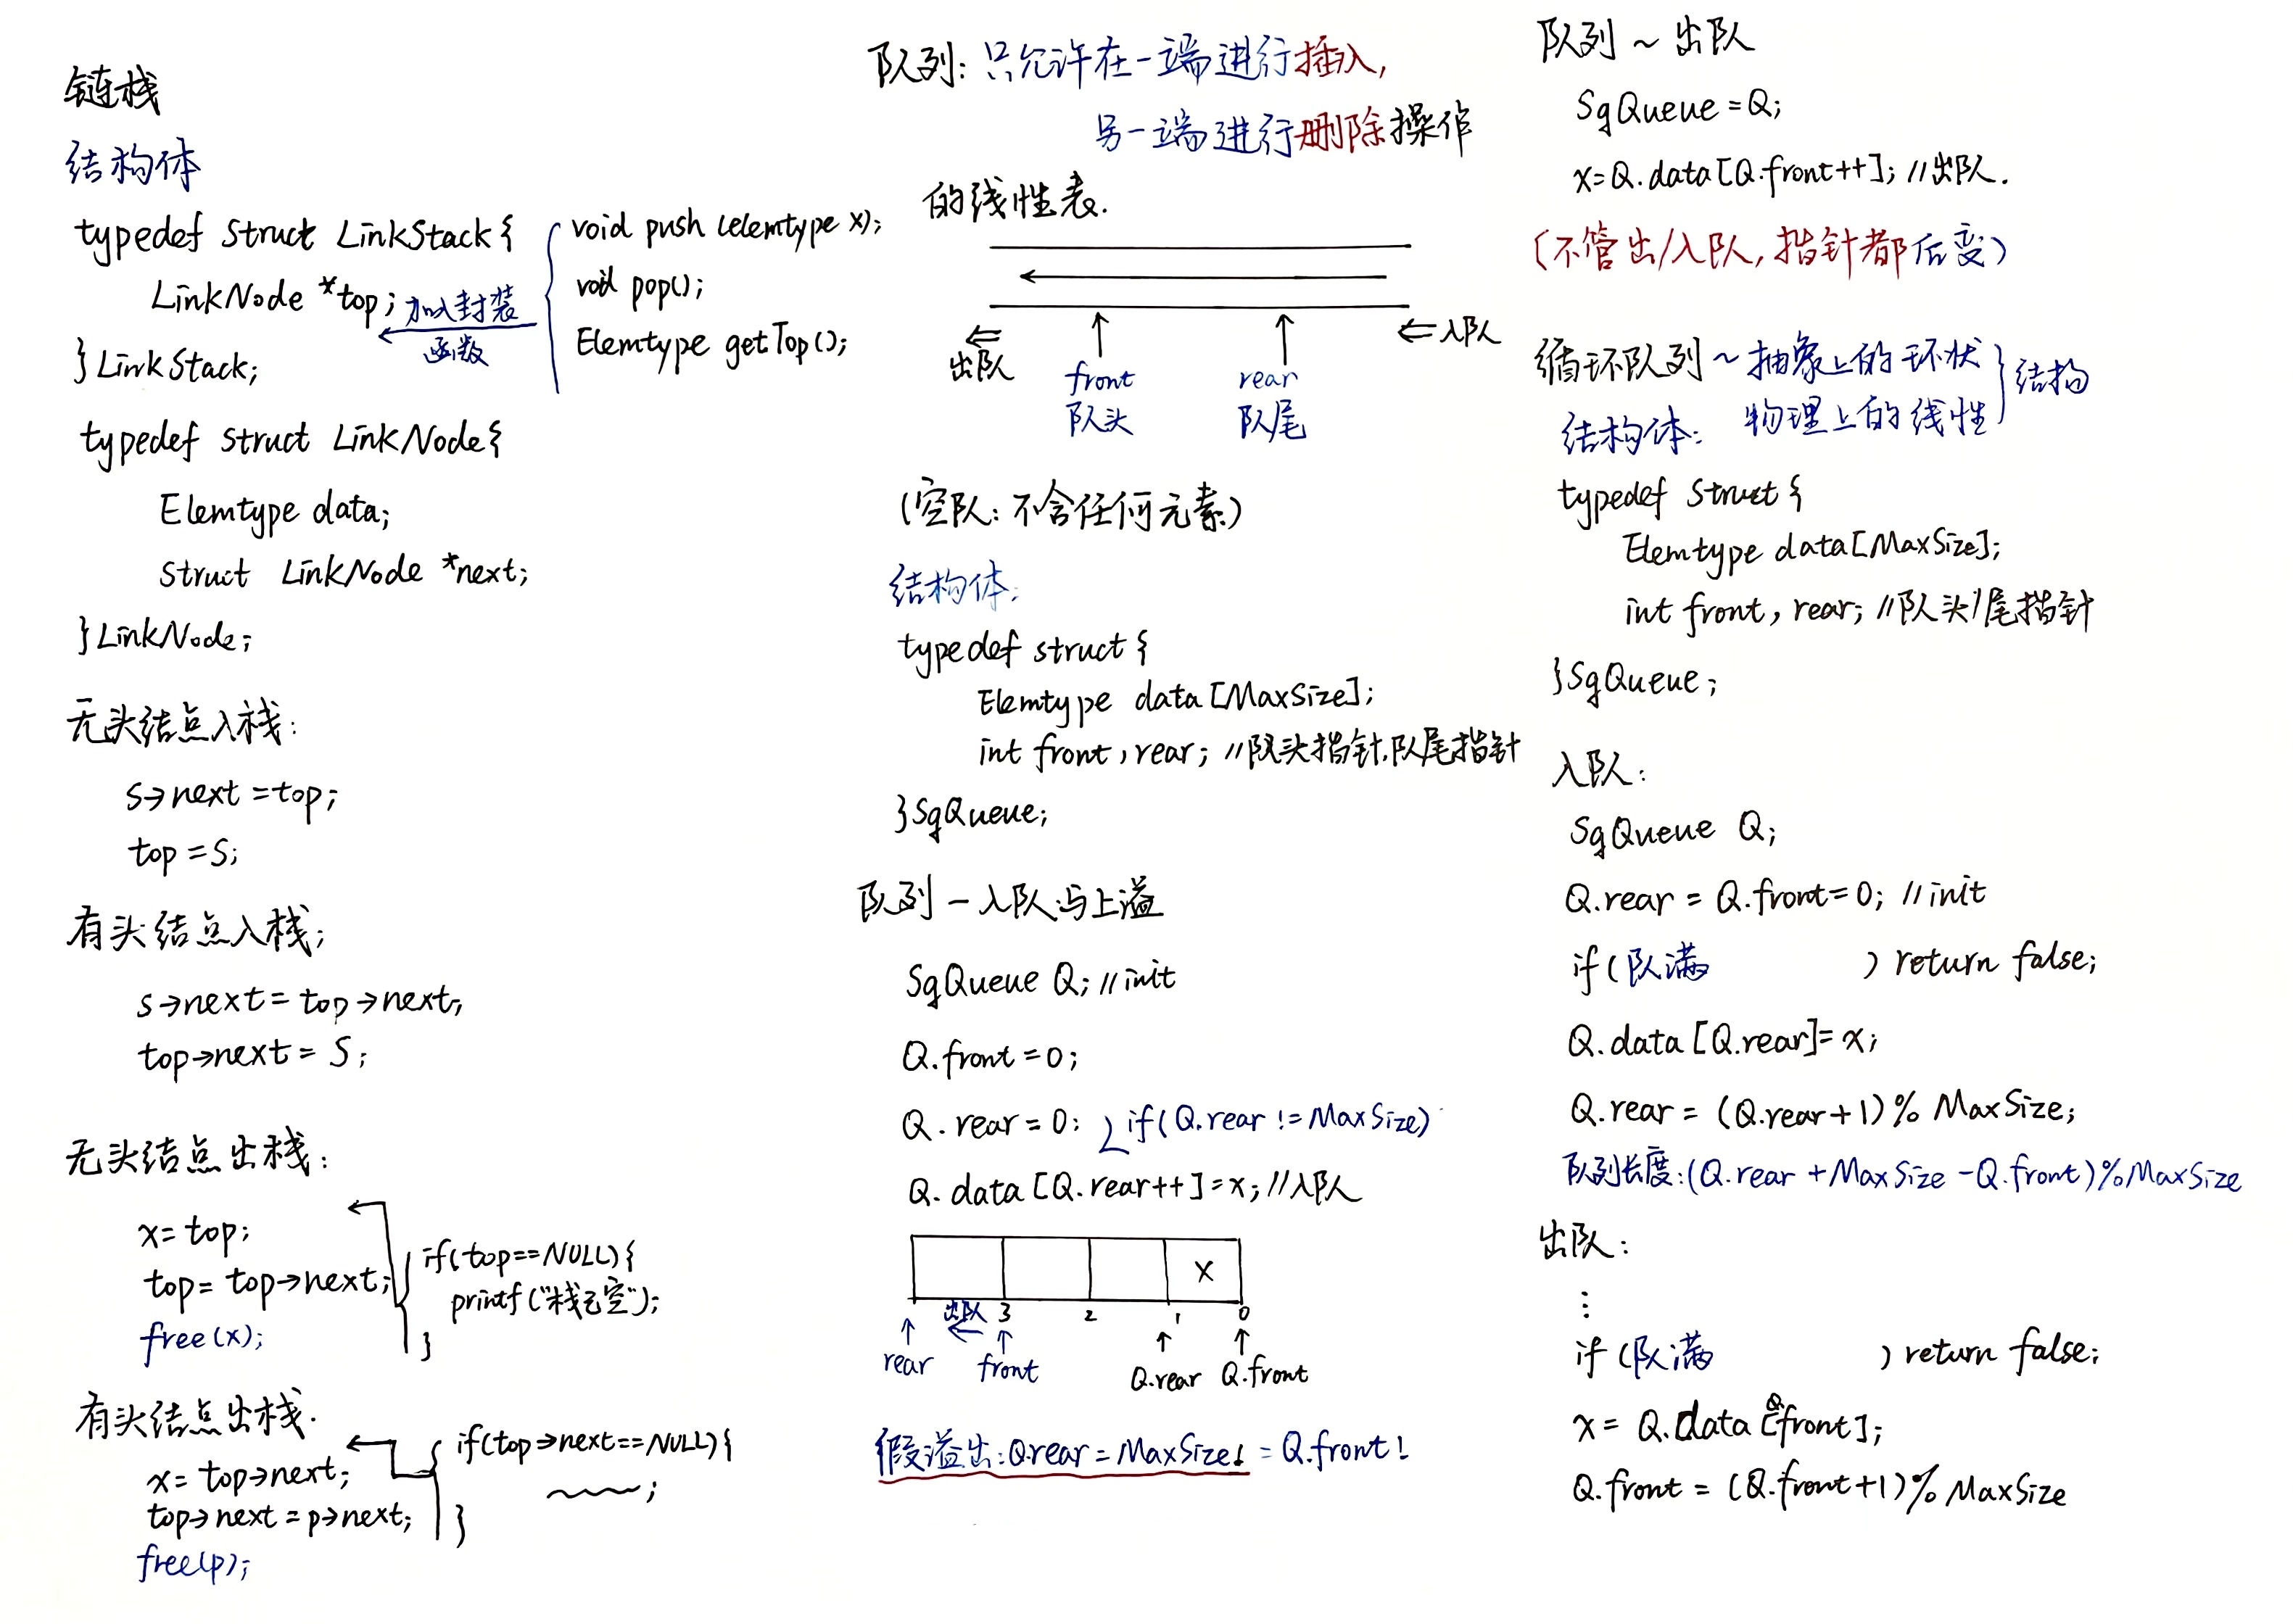 链栈
结构体
typedef struct LinkStack{
LinkNode *top;
}LinkStack;
加入封装
函数
void push (elemtype x);
void pop();
Elemtype getTop();
typedef struct LinkNode{
Elemtype data;
struct LinkNode *next;
}LinkNode;
无头结点入栈:
s→next=top;
top=S;
有头结点入栈;
s→next=top→next;
top→next=S;
无头结点出栈:
x=top;
top=top→next;
free(x);
if(top==NULL){
printf("栈已空");
}
有头结点出栈.
x=top→next;
top→next=p→next;
free(p);
if(top→next==NULL){
;
}
队列:只允许在一端进行插入,
另一端进行删除操作
的线性表.
⇐ 出队
↑ front 队头
↑ rear 队尾
⇐入队
(空队:不含任何元素)
结构体:
typedef struct{
Elemtype data[MaxSize];
int front,rear; //队头指针,队尾指针
}SgQueue;
队列-入队与上溢
SgQueue Q; //init
Q.front=0;
Q.rear=0;
if(Q.rear!=MaxSize)
Q.data[Q.rear++]=x; //入队
x
出队 3 2 1 0
rear front Q.rear Q.front
假溢出:Q.rear=MaxSize!=Q.front!
队列~出队
SgQueue=Q;
x=Q.data[Q.front++]; //出队.
(不管出/入队,指针都后变)
循环队列~抽象上的环状
物理上的线性
}结构
结构体:
typedef struct{
Elemtype data[MaxSize];
int front,rear; //队头/尾指针
}SgQueue;
入队:
SgQueue Q;
Q.rear=Q.front=0; //init
if(队满 ) return false;
Q.data[Q.rear]=x;
Q.rear=(Q.rear+1)% MaxSize;
队列长度:(Q.rear+MaxSize-Q.front)%MaxSize
出队:
⋮
if(队满 ) return false;
x=Q.data[Q.front];
Q.front=(Q.front+1)% MaxSize